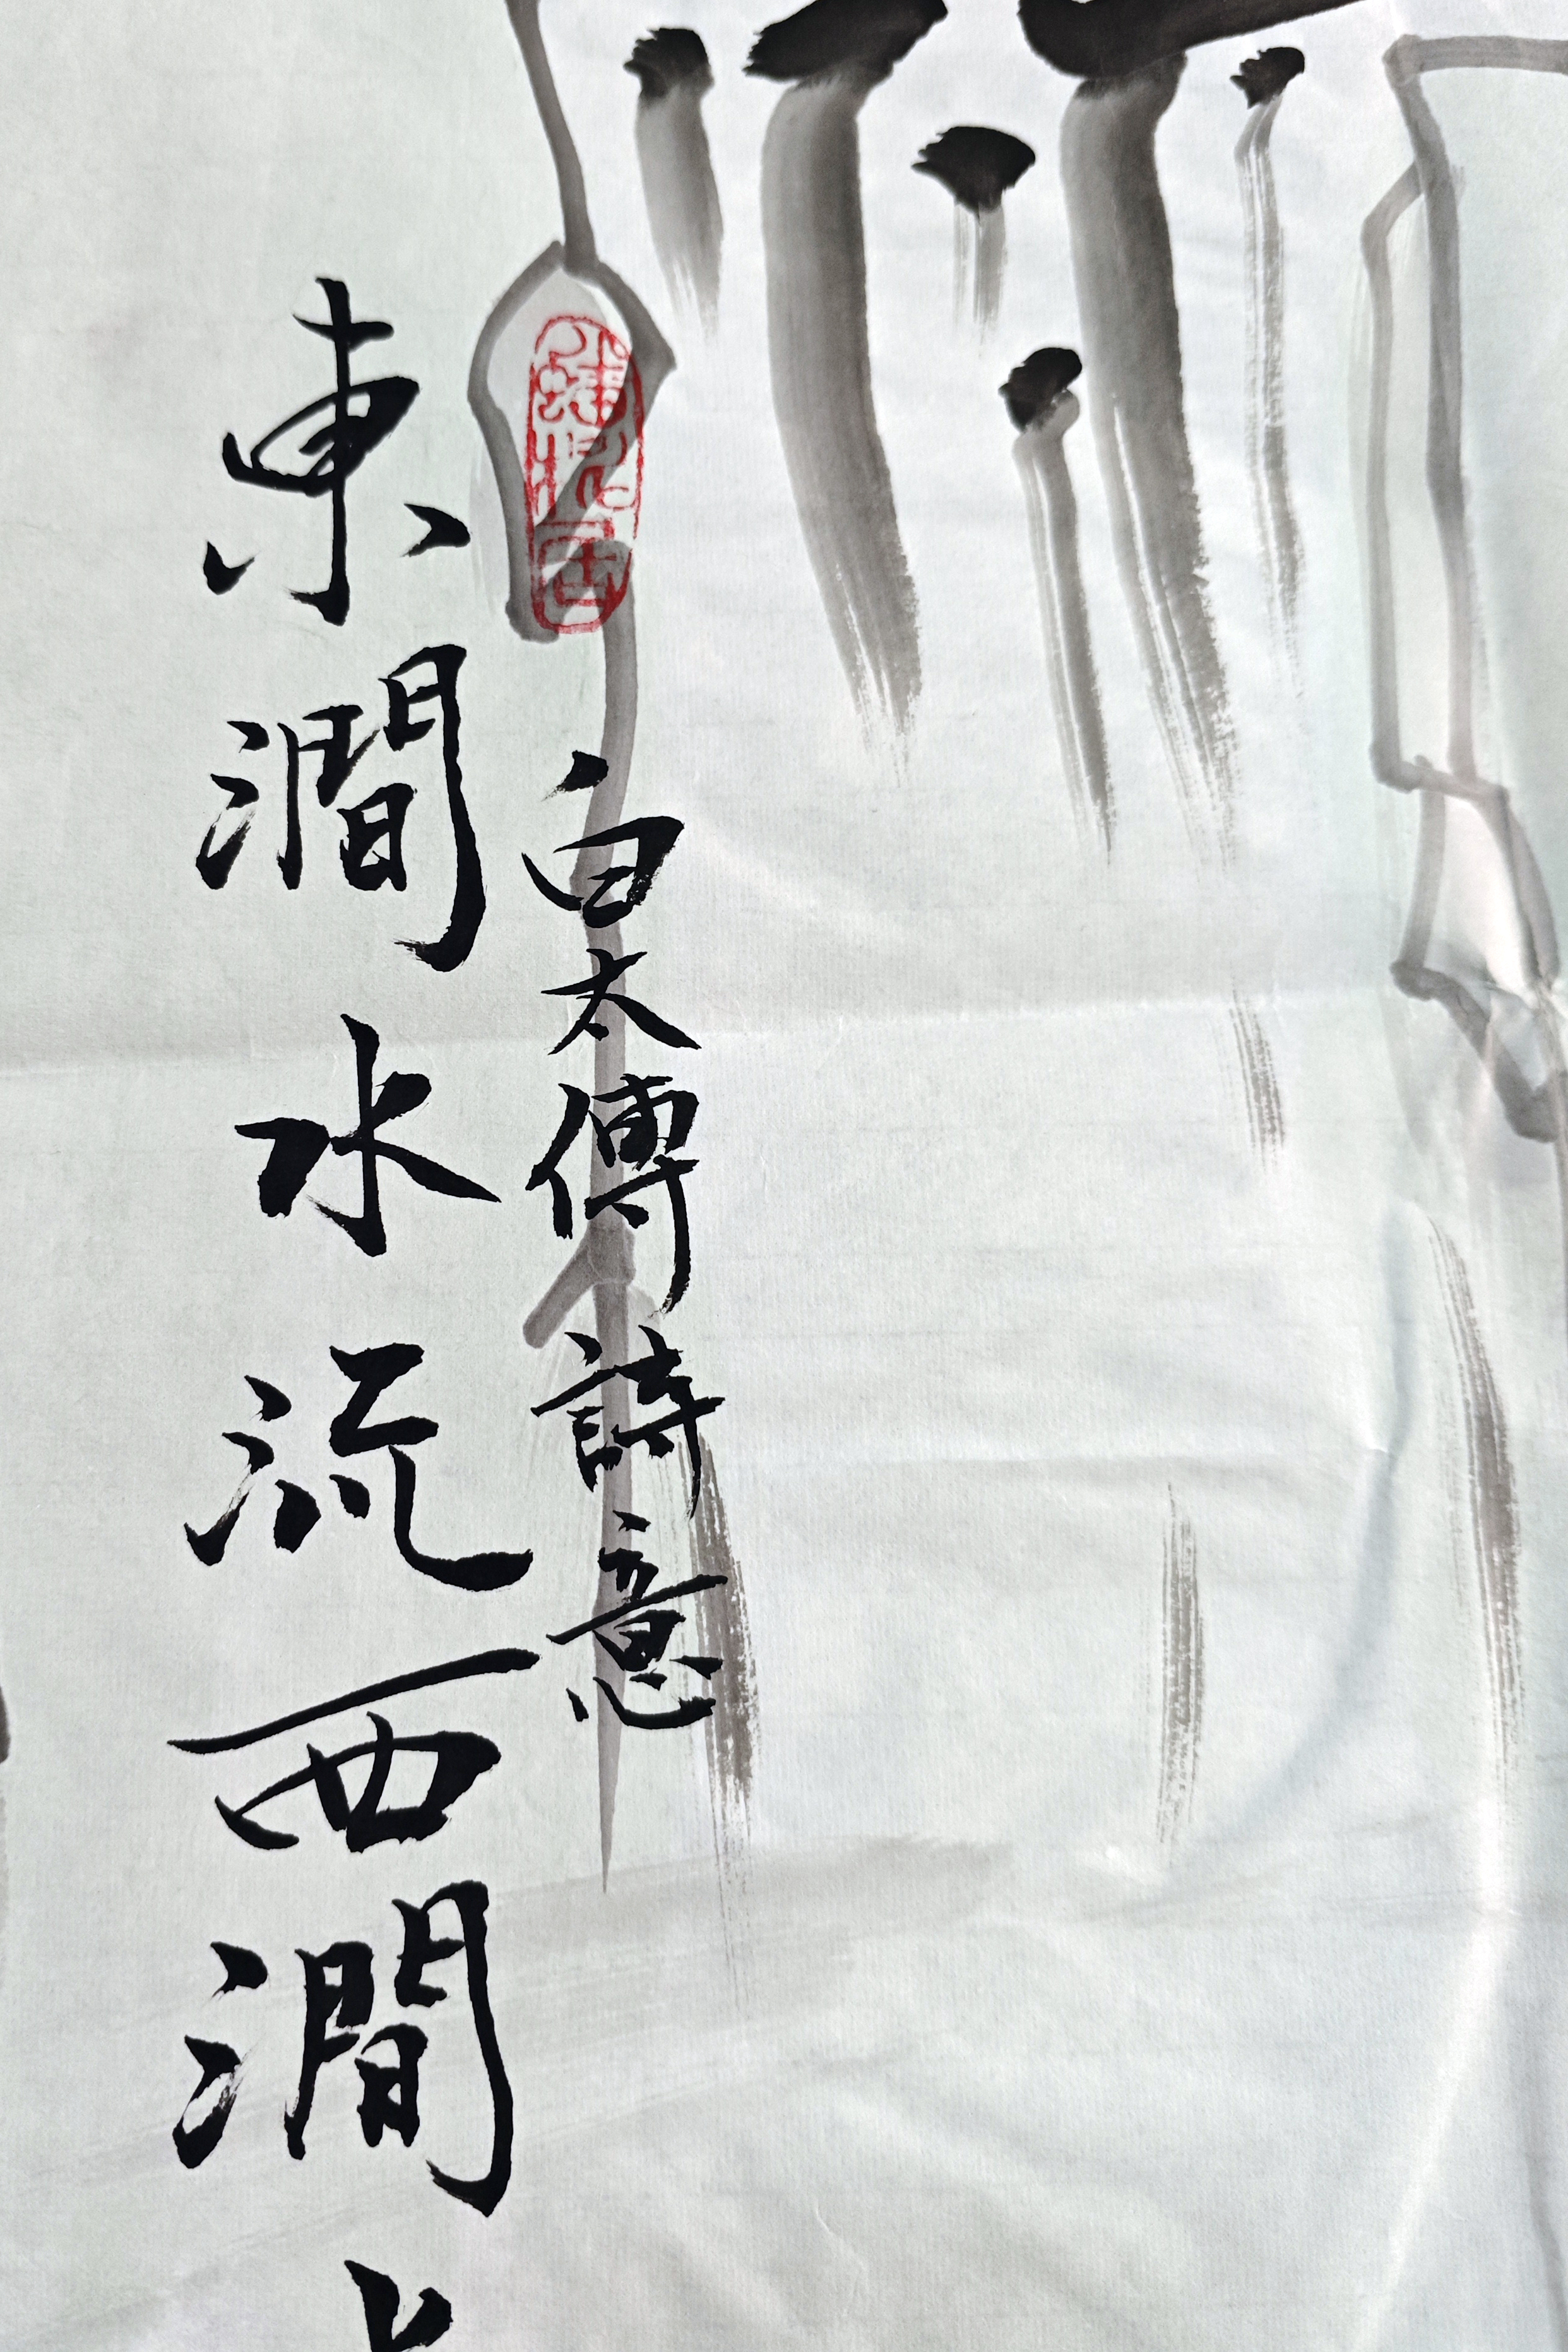 白太傅詩意
東澗水流西澗